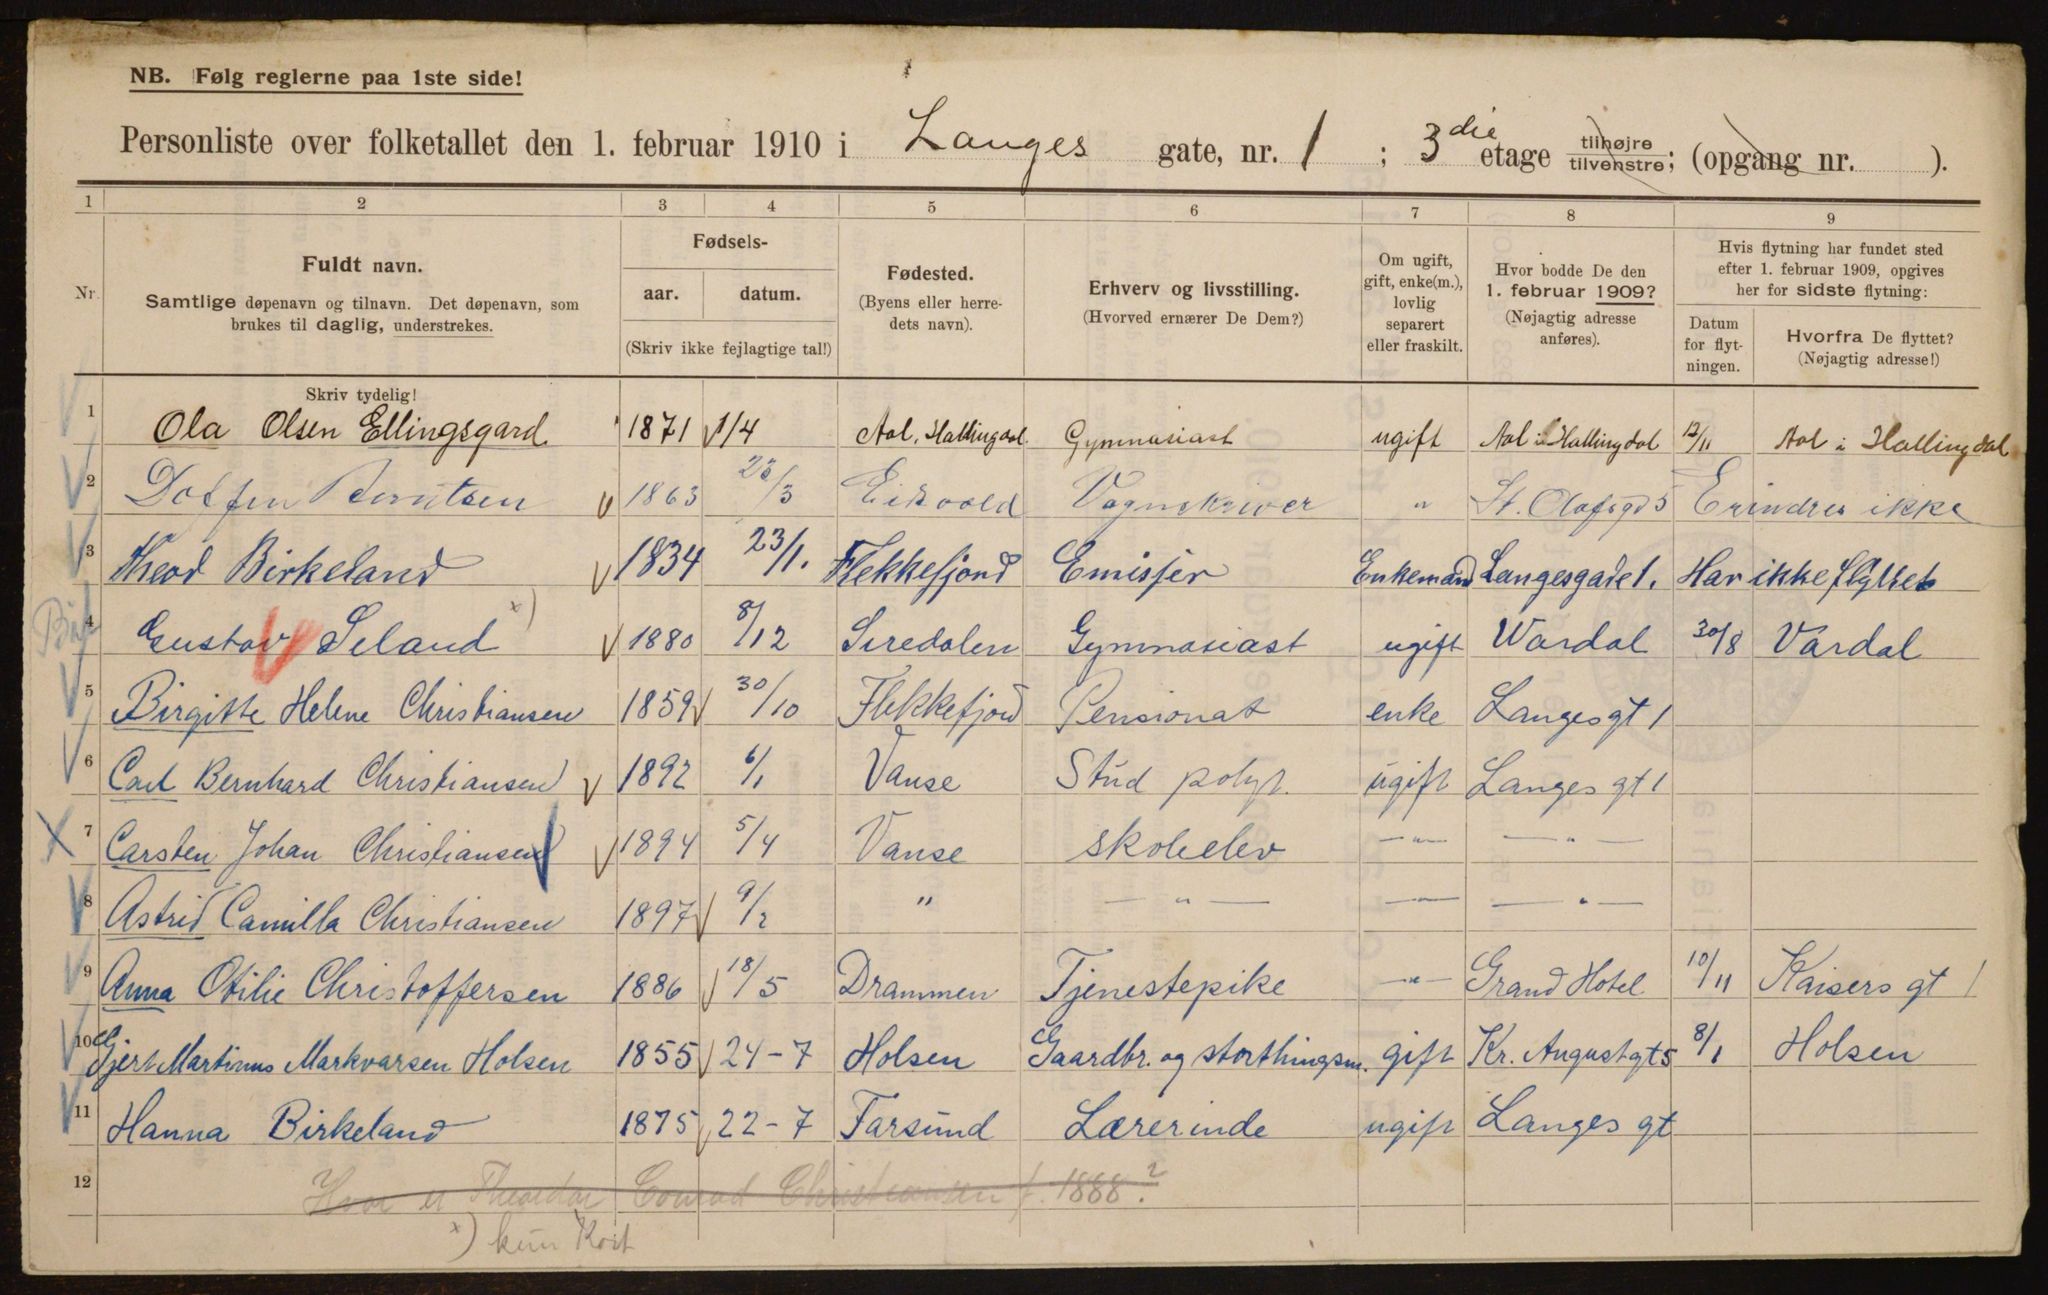 NB. Følg reglerne paa 1ste side!
Personliste over folketallet den 1. februar 1910 i Langes gate, nr. 1 ; 3die etage tilhøjre tilvenstre; (opgang nr. ).
1 2 3 4 5 6 7 8 9
Nr. Fuldt navn. Samtlige døpenavn og tilnavn. Det døpenavn, som brukes til daglig, understrekes.
Fødsels- aar. datum. (Skriv ikke fejlagtige tal!)
Fødested. (Byens eller herredets navn).
Erhverv og livsstilling. (Hvorved ernærer De Dem?)
Om ugift, gift, enke(m.), lovlig separert eller fraskilt.
Hvor bodde De den 1. februar 1909? (Nøjagtig adresse anføres).
Hvis flytning har fundet sted efter 1. februar 1909, opgives her for sidste flytning:
Datum for flytningen. Hvorfra De flyttet? (Nøjagtig adresse!)
Skriv tydelig!
1 Ola Olsen Ellingsgard 1871 1/4 Aal, Hallingdal. Gymnasiast ugift Aal i Hallingdal 12/11 Aal i Hallingdal
2 Berntsen 1863 23/3 Eidsvold Vognskriver " St. Olafsgd 5 Erindrer ikke
3 Theod Birkeland 1834 23/1. Flekkefjord Emisjer Enkemand Langesgade 1. Har ikke flyttet
4 Gustav Seland x) 1880 8/12 Siredalen Gymnasiast ugift Wardal 30/8 Vardal
5 Birgitte Helene Christiansen 1859 30/10 Flekkefjord Pensionat enke Langes gt 1
6 Carl Bernhard Christiansen 1892 6/1 Vanse Stud polyt. ugift Langes gt 1
7 Carsten Johan Christiansen 1894 5/4 Vanse skoleelev — " — — " —
8 Astrid Camilla Christiansen 1897 9/2 " — " — — " — — " —
9 Anna Otilie Christoffersen 1886 18/5 Drammen Tjenestepike — " — Grand Hotel 10/11 Kaisers gt 1
10 Gjert Martinus Markvarsen Holsen 1855 24-7 Holsen Gaardbr. og storthingsm. gift Kr. August gt 5 8/1 Holsen
11 Hanna Birkeland 1875 22-7 Farsund Lærerinde ugift Langes gt
12 Hvor er Theodor Conrad Christiansen f. 1888?
x) kun Kort